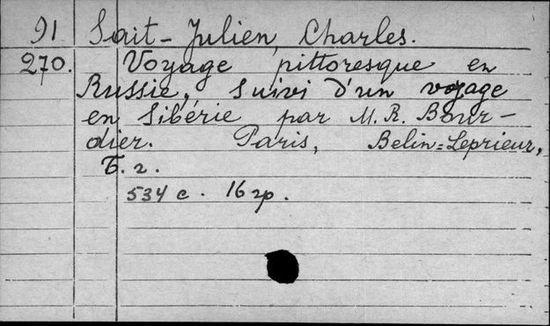 91 Sait-Julien, Charles.
270. Voyage pittoresque en
Russie, suivi d'un voyage
en Sibérie par M. R. Bour-
dier. Paris, Belin=Leprieur,
Б. г.
534 с. 16 гр.